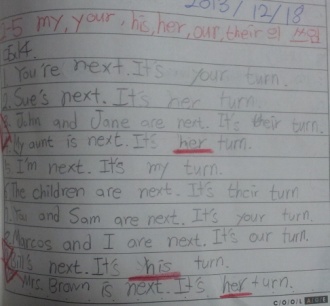 2013/12/18
1-5 my, your, his, her, our, their의 쓰임
Ex)4
1. You're next. It's your turn.
2. Sue's next. It's her turn.
3. John and Jane are next. It's their turn.
4. My aunt is next. It's her turn.
5. I'm next. It's my turn.
6. The children are next. It's their turn
7. You and Sam are next. It's your turn.
8. Marcos and I are next. It's our turn.
Bill's next. It's his turn.
Mrs. Brown is next. It's her turn.
COOL